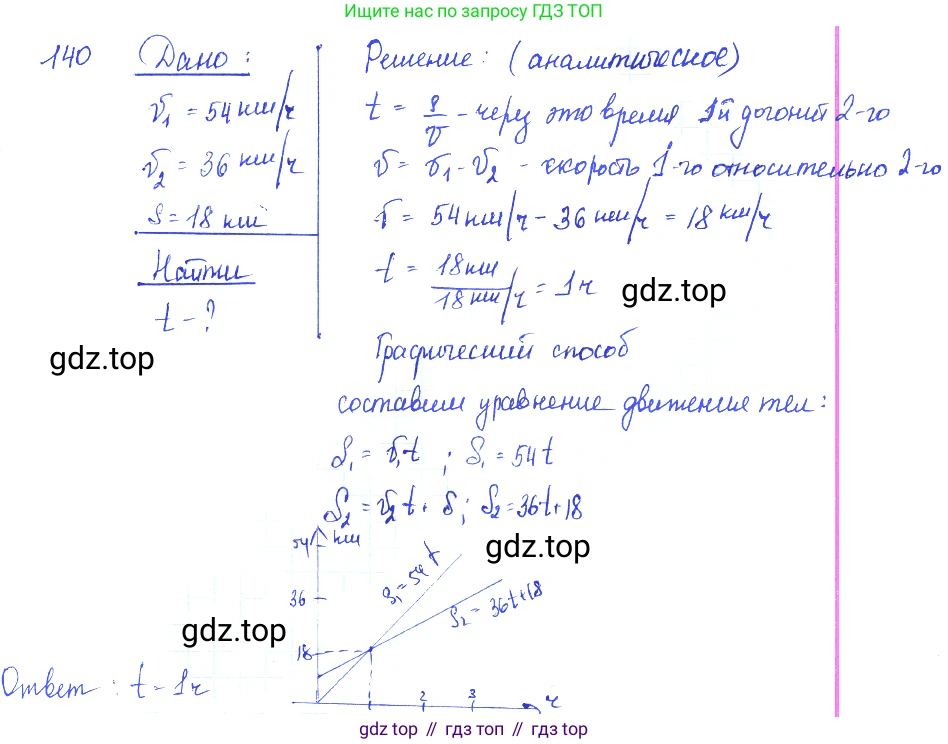 Ищите нас по запросу ГДЗ ТОП
140 Дано: Решение: (аналитическое)
v₁ = 54 км/ч t = s/v - через это время 1й догонит 2-го
v₂ = 36 км/ч v = v₁ - v₂ - скорость 1-го относительно 2-го
S = 18 км v = 54 км/ч - 36 км/ч = 18 км/ч
Найти t = 18 км / 18 км/ч = 1ч
t - ?
gdz.top
gdz.top
Графический способ
составим уравнение движения тел:
S₁ = v₁t ; S₁ = 54t
S₂ = v₂t + S ; S₂ = 36t+18
54 км
gdz.top
S₁ = 54t
36
S₂ = 36t+18
gdz.top
18
Ответ: t = 1ч
1 2 3 ч
gdz top // гдз топ // gdz.top // гдз топ